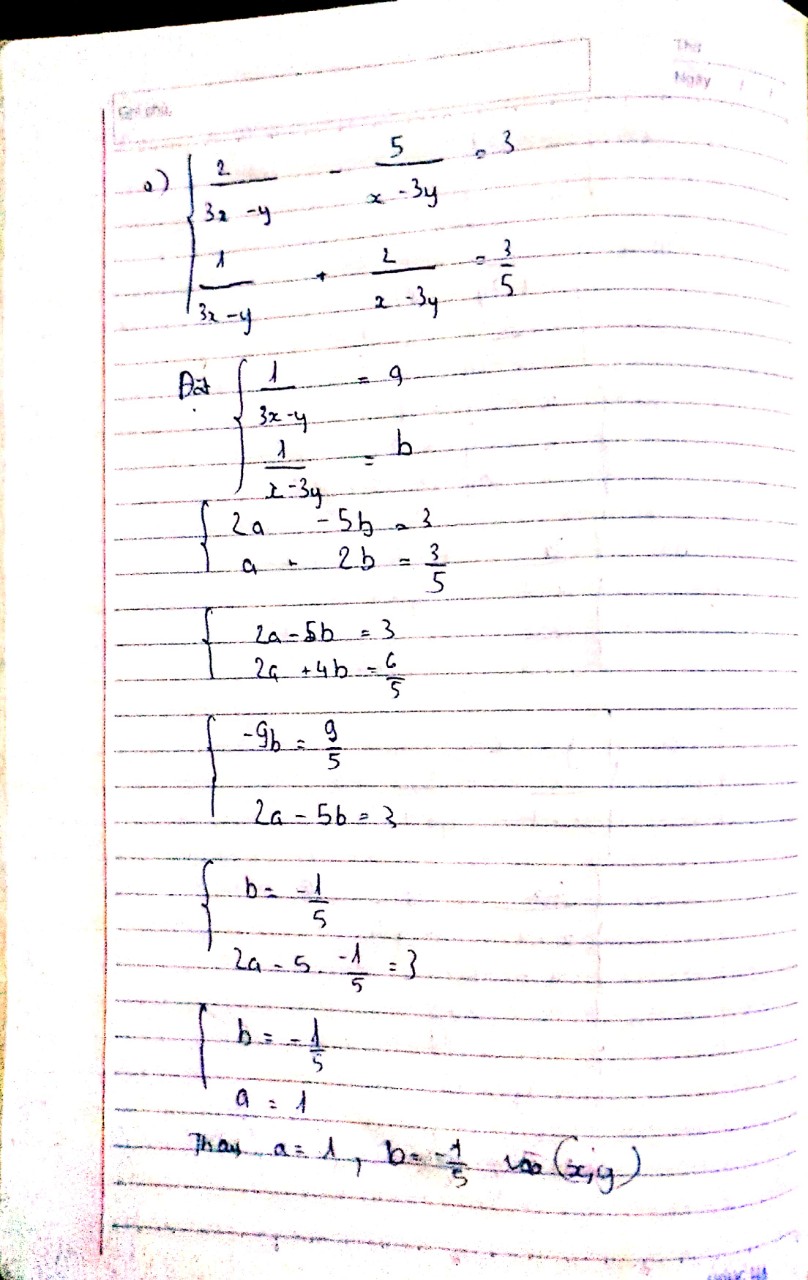 Thứ
Ngày / /
Ghi chú
a) { 2/(3x-y) - 5/(x-3y) = 3
1/(3x-y) + 2/(x-3y) = 3/5
Đặt { 1/(3x-y) = a
1/(x-3y) = b
{ 2a - 5b = 3
a + 2b = 3/5
{ 2a - 5b = 3
2a + 4b = 6/5
{ -9b = 9/5
2a - 5b = 3
{ b = -1/5
2a - 5 . -1/5 = 3
{ b = -1/5
a = 1
Thay a = 1, b = -1/5 vào (x,y)